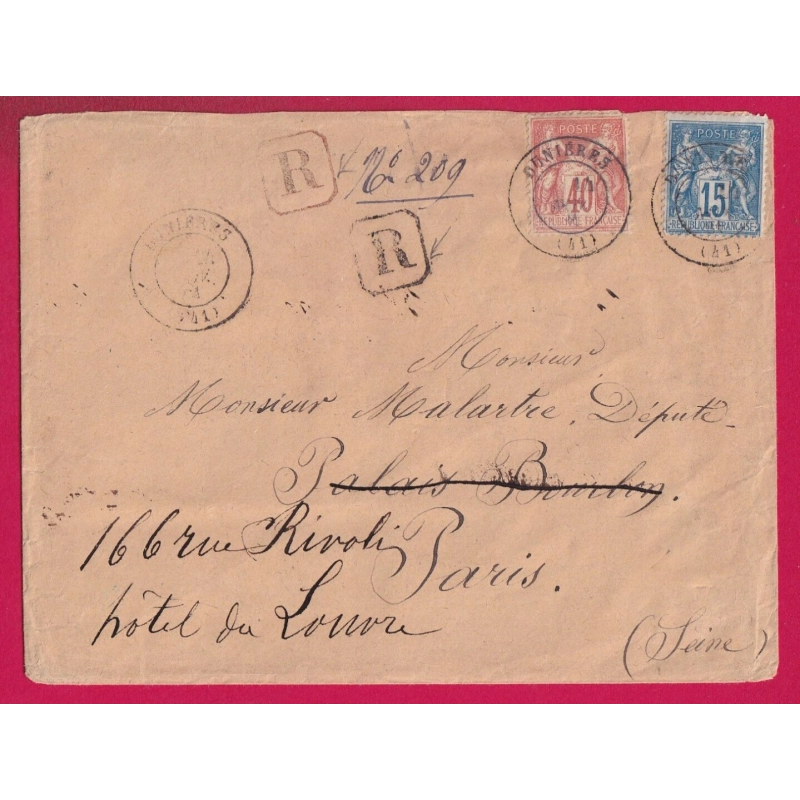 R
No 209
R
POSTE
40
REPUBLIQUE FRANÇAISE
DUNIÈRES
(41)
POSTE
15
REPUBLIQUE FRANÇAISE
(41)
DUNIÈRES
(41)
Monsieur
Monsieur Malartre, Député
Palais Bourbon.
166 rue Rivoli Paris.
hôtel du Louvre
(Seine)